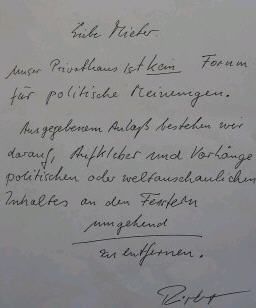 Liebe Mieter.
unser Privathaus ist kein Forum
für politische Meinungen.
Ausgegebenem Anlaß bestehen wir
darauf, Aufkleber und Vorhänge
politischen oder weltanschaulichen
Inhaltes an den Fenstern
umgehend
zu entfernen.